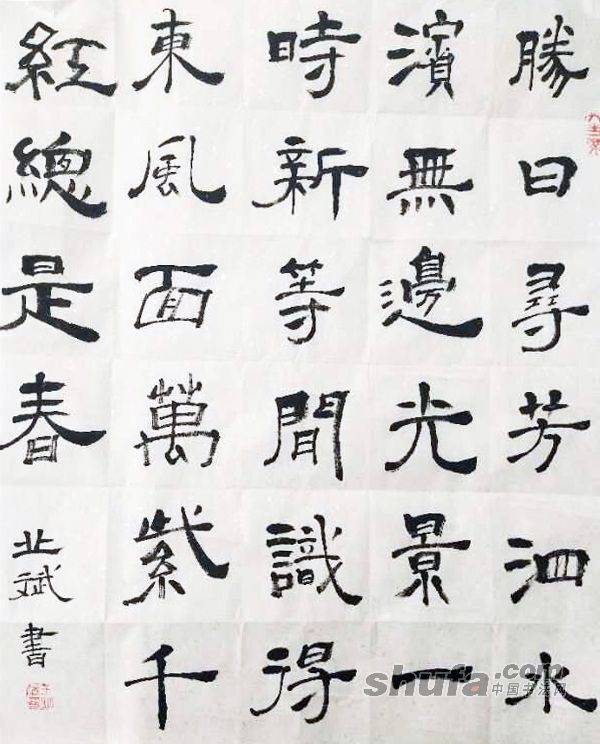 勝日尋芳泗水
濱無邊光景一
時新等閒識得
東風面萬紫千
紅總是春
斌書
shufa.com
中国书法网